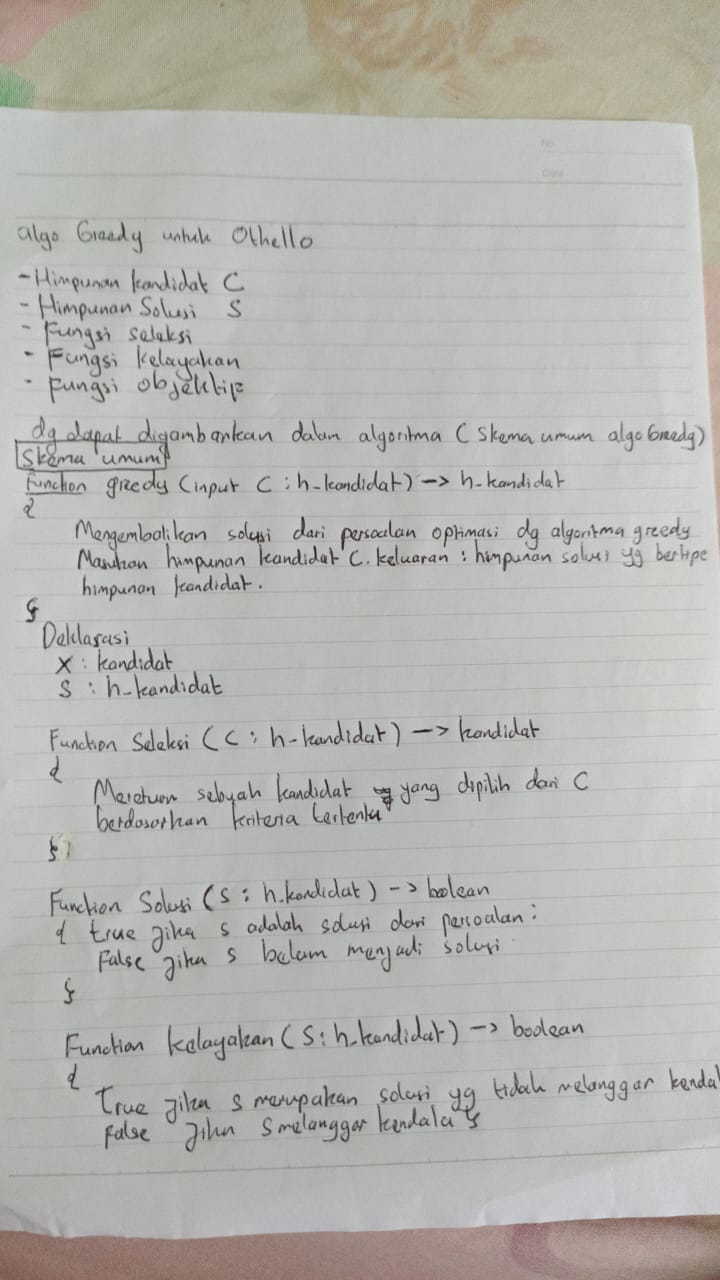 No.
Date
algo Greedy untuk Othello
- Himpunan kandidat C
- Himpunan Solusi S
- Fungsi seleksi
- Fungsi kelayakan
- fungsi objektif
dg dapat digambarkan dalam algoritma ( Skema umum algo Greedy)
Skema umum
Function greedy (input C : h-kandidat) -> h-kandidat
{
Mengembalikan solusi dari persoalan optimasi dg algoritma greedy
Masukan himpunan kandidat C. keluaran : himpunan solusi yg bertipe
himpunan kandidat.
}
Deklarasi
X : kandidat
S : h-kandidat
Function Seleksi ( C : h-kandidat) -> kandidat
{
Mereturn sebuah kandidat yang dipilih dari C
berdasarkan kriteria tertentu
}
Function Solusi (S : h.kandidat) -> boolean
{ true jika s adalah solusi dari persoalan :
False jika s belum menjadi solusi
}
Function kelayakan ( S : h.kandidat) -> boolean
{
true jika s merupakan solusi yg tidak melanggar kendal
false jika s melanggar kendala }